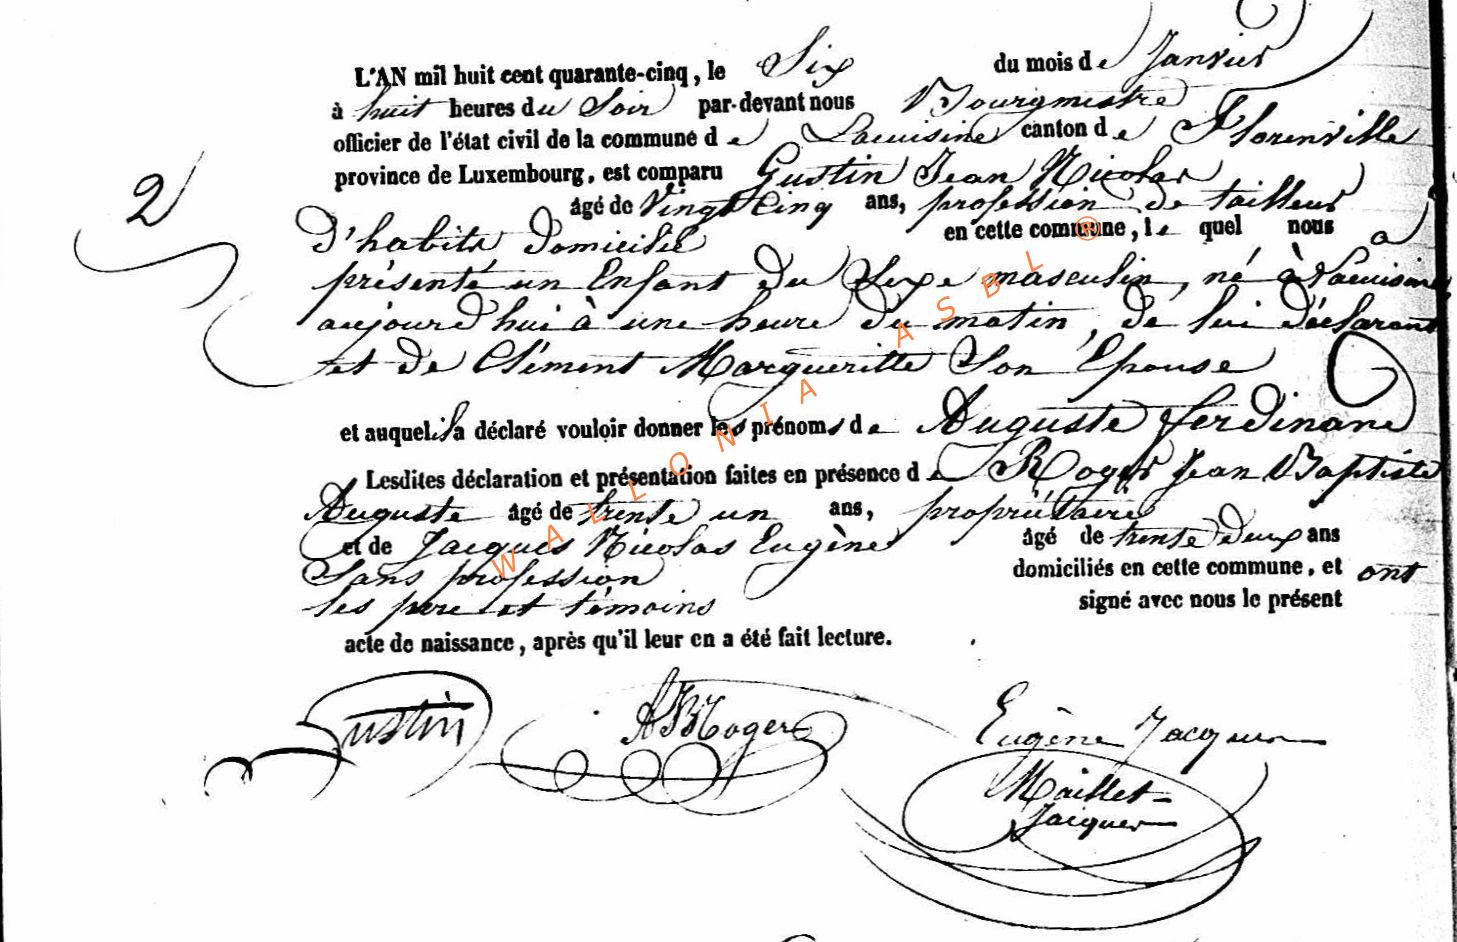 L'AN mil huit cent quarante-cinq, le Six du mois de Janvier
à huit heures du Soir par-devant nous Bourgmestre
officier de l'état civil de la commune de Lacuisine canton de Florenville
province de Luxembourg, est comparu Gustin Jean Nicolas
âgé de Vingt Cinq ans, profession de tailleur
d'habits domicilié en cette commune, le quel nous a
2
présenté un Enfant du Sexe masculin, né à Lacuisine
aujourd'hui à une heure du matin, de lui déclarant
et de Clément Margueritte Son Epouse
et auquel il a déclaré vouloir donner les prénoms de Auguste Ferdinand
Lesdites déclaration et présentation faites en présence de Roger Jean Baptiste
Auguste âgé de trente un ans, propriétaire
et de Jacques Nicolas Eugène âgé de trente deux ans
Sans profession domiciliés en cette commune, et ont
les père et témoins signé avec nous le présent
acte de naissance, après qu'il leur en a été fait lecture.
Gustin ABRoger Eugène Jacques
Maillet-
Jacques
WALLONIA ASBL ®